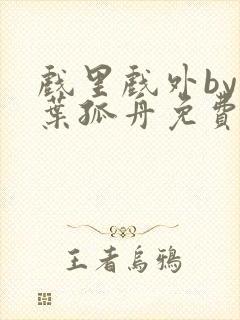 戏里戏外by
葉孤舟免費
王者烏鴉